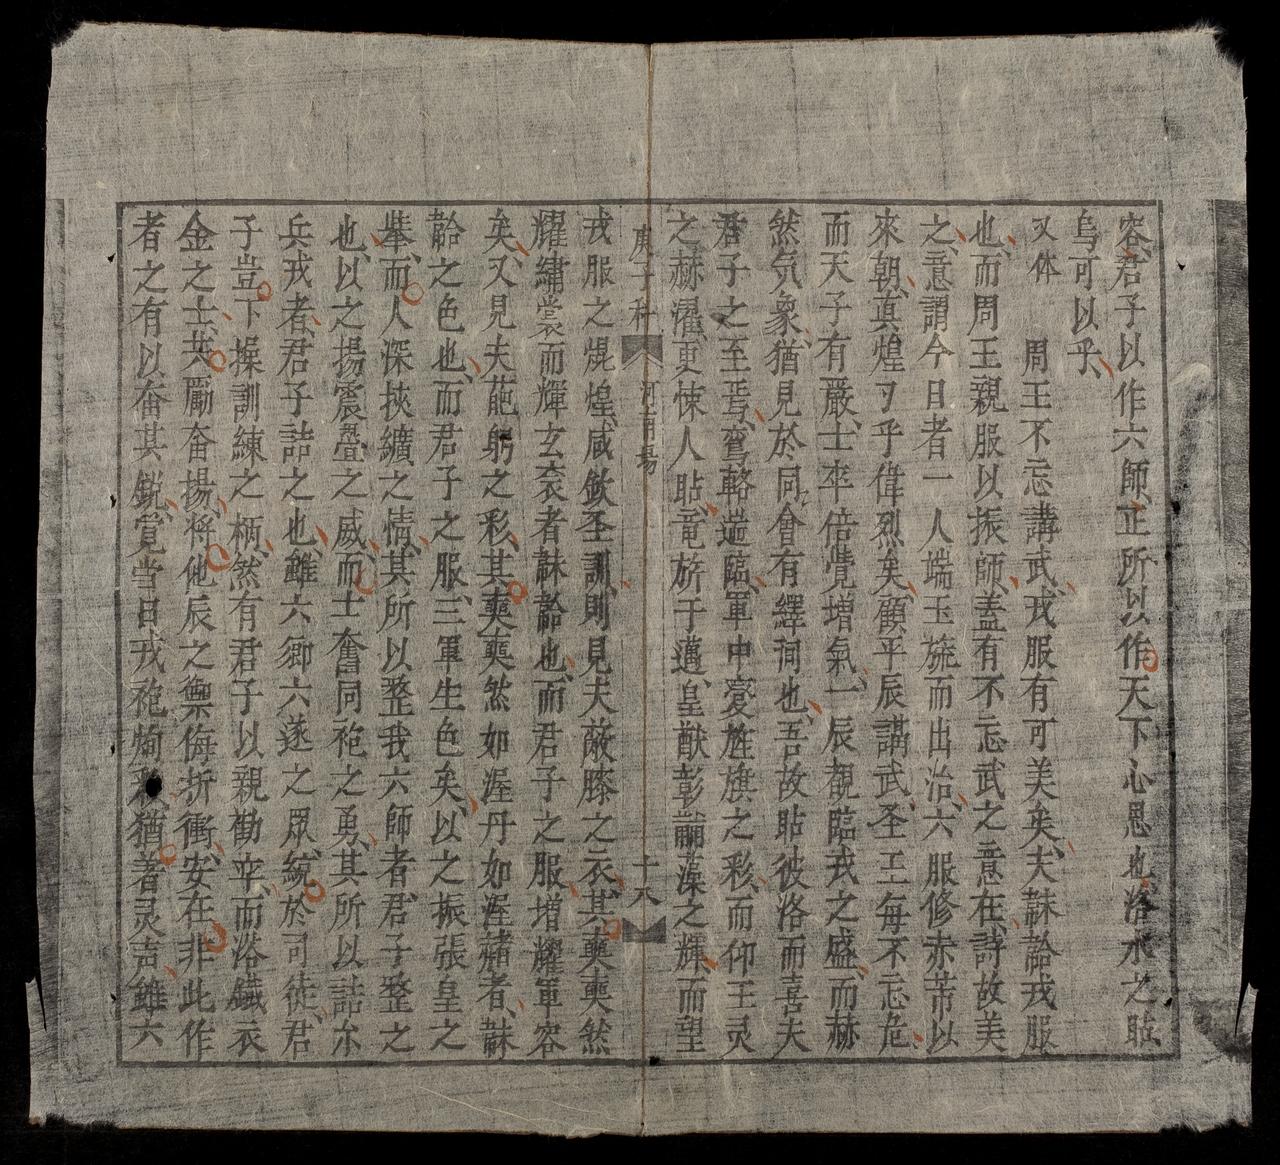 容、君子以作六師、正所以作天下心思也洛水之貼
烏可以乎、
又体 周王不忘講武、戎服有可美矣、夫韎韐戎服
也、而周王親服以振師、盖有不忘武之意在、詩故美
之、意謂今日者一人端玉旒而出治、六服修赤芾以
來朝、真煌々乎偉烈矣、顧平辰講武、圣王每不忘危
而天子有嚴、士卒倍覺増氣、一辰親臨戎之盛、而赫
然気象、猶見於同會有繹洞也、吾故貼彼洛而喜夫
君子之至焉、鸞輅遥臨、軍中憂旌旗之彩、而仰王灵
之赫濯、更悚人貼、竜旂于邁、皇猷彰黼藻之輝、而望
庚子科 河南場 十八
戎服之焜煌、咸欽圣訓、則見夫蔽膝之衣、其奭奭然
耀繡裳而輝玄衮者韎韐也、而君子之服増耀軍容
矣、又見夫葩躬之彩、其奭奭然如渥丹如渥赭者、韎
韐之色也、而君子之服、三軍生色矣、以之振張皇之
挙、而人深挾纊之情、其所以整我六師者、君子整之
也、以之揚震疊之威、而士奮同袍之勇、其所以詰尓
兵戎者、君子詰之也、雖六卿六遂之眾、統於司徒、君
子豈下操訓練之柄、然有君子以親勸卒、而洛鐵衣
金之士、共勵奋揚、将他辰之禦侮折衝、安在非此作
者之有以奋其銳、覚当日戎袍炳彩猶著灵声、雖六